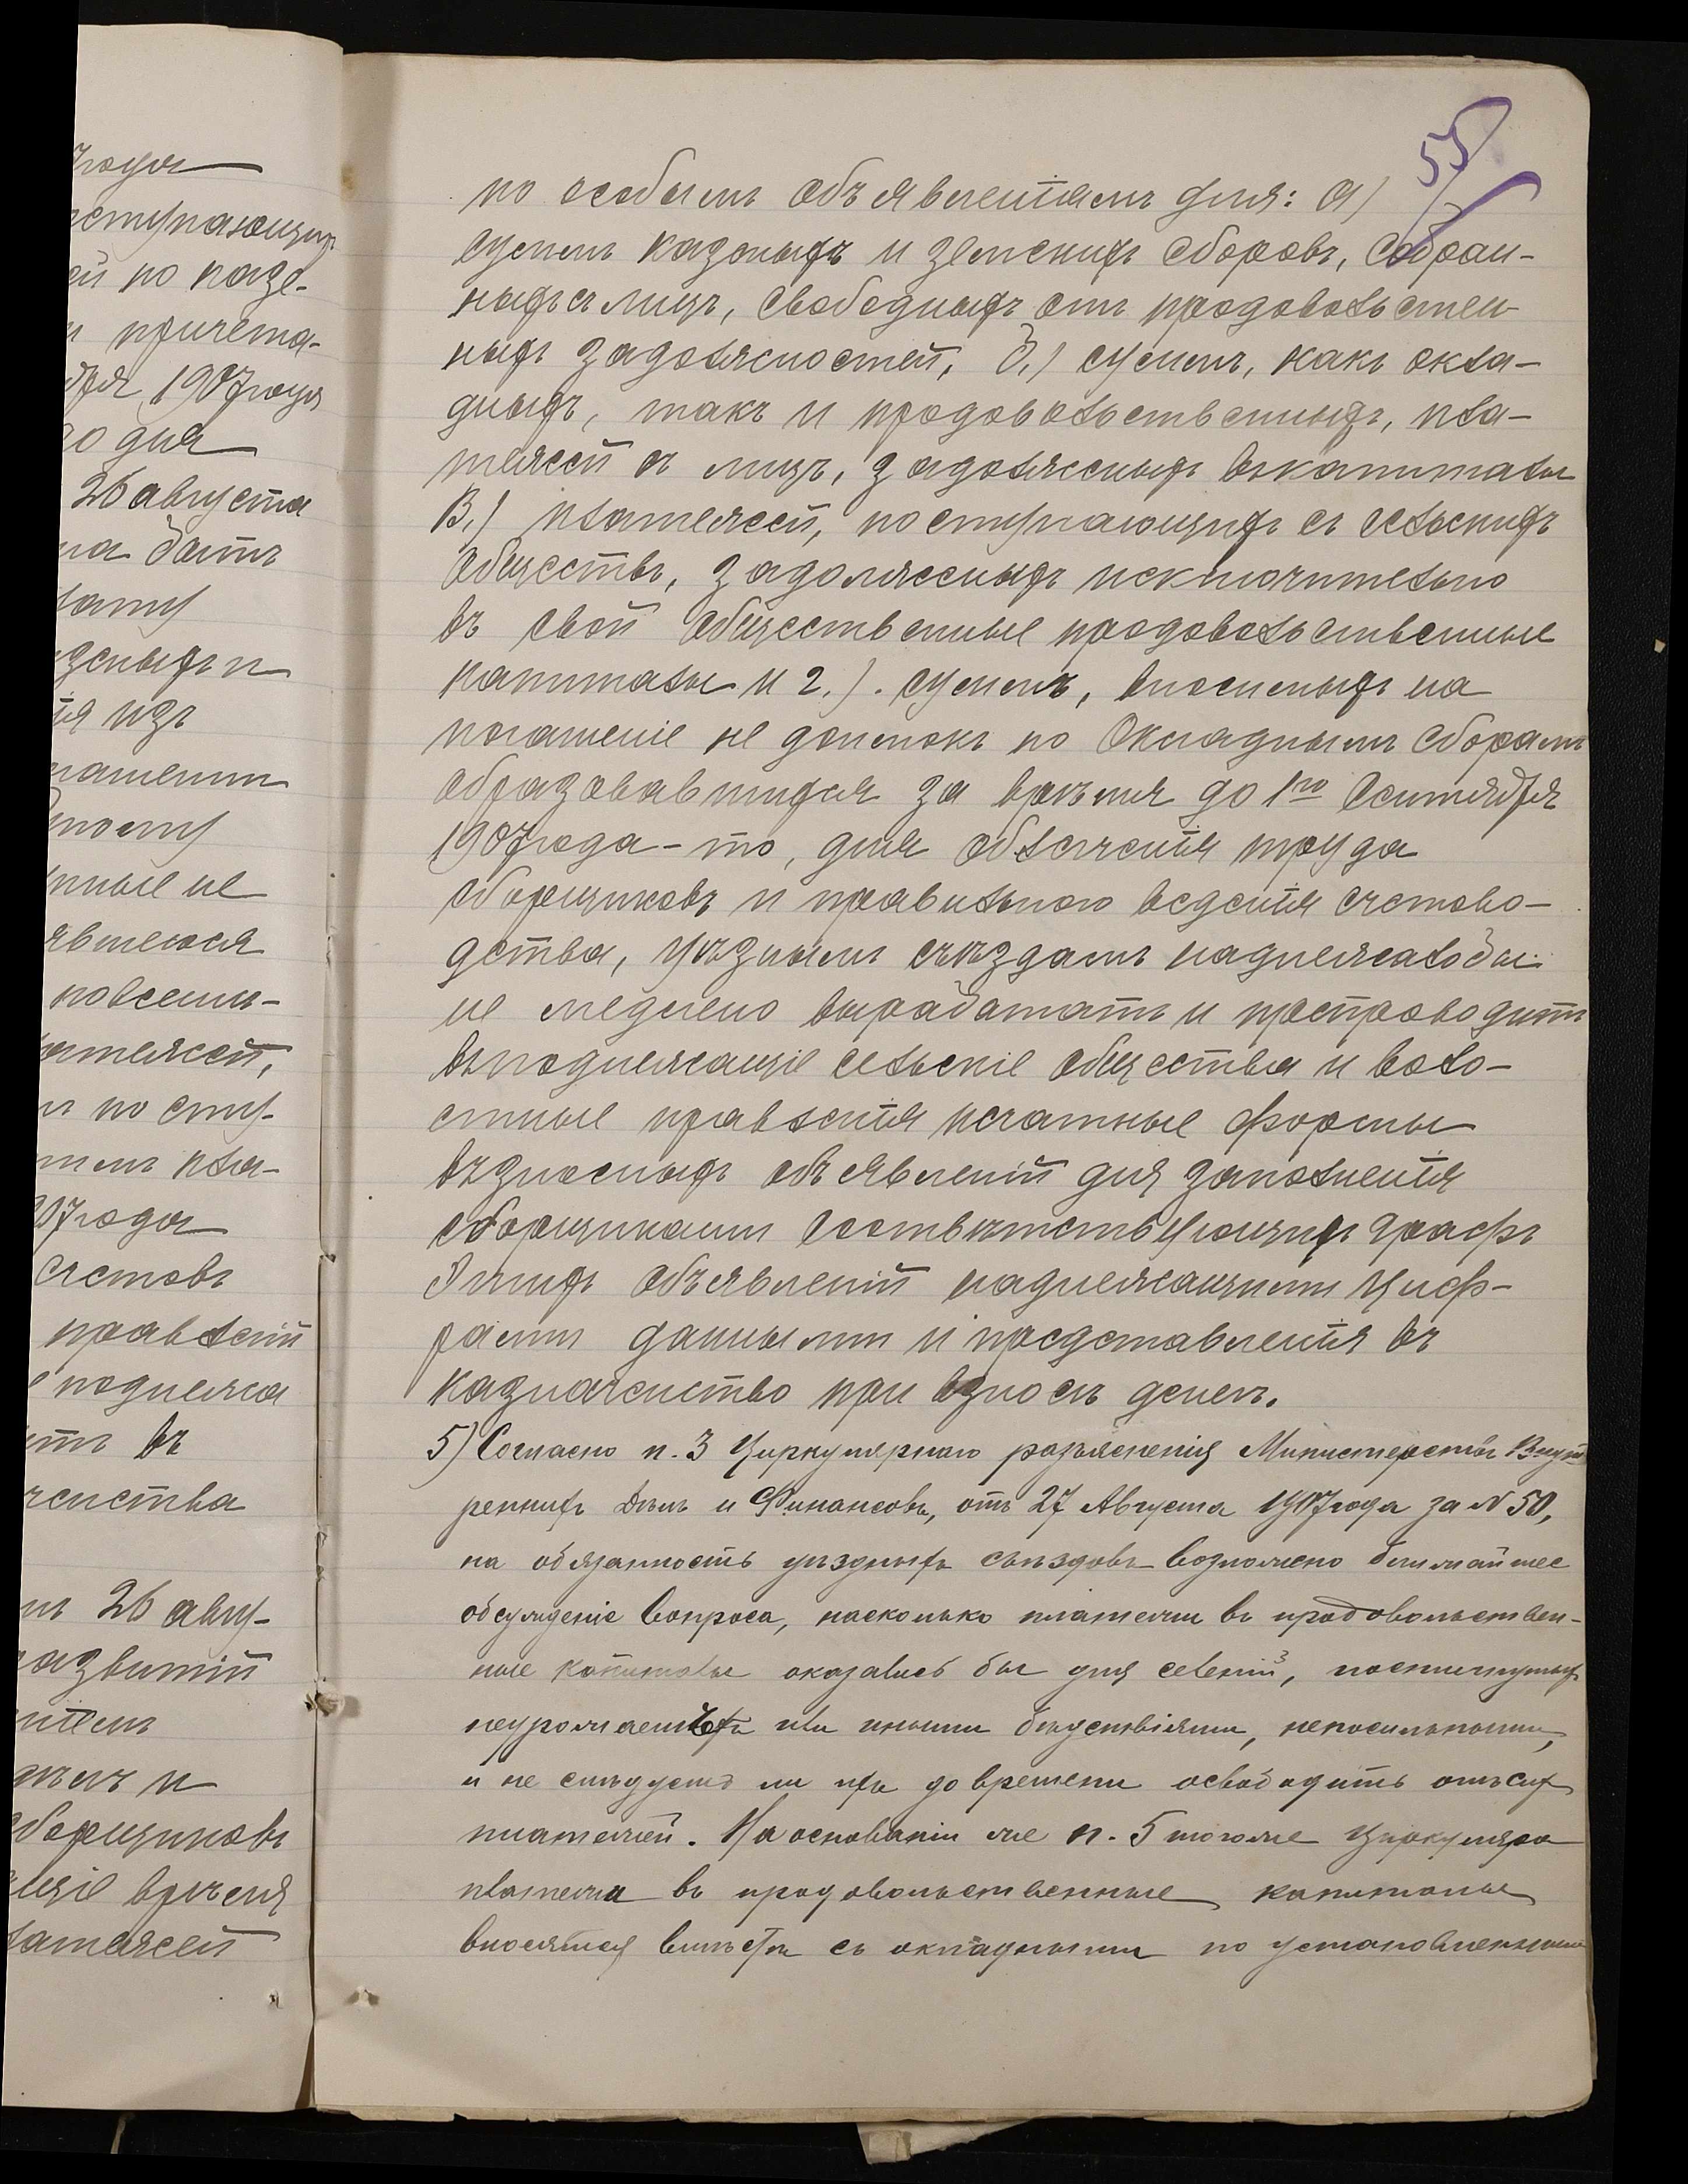 55
по особымъ объявленіямъ для: а)
суммъ казеныхъ и земскихъ сборовъ, собран-
ныхъ съ лицъ, свободныхъ отъ продовольствен-
ныхъ задолжностей, б.) суммъ, какъ окла-
дныхъ, такъ и продовольственныхъ, пла-
тежей съ лицъ, задолженыхъ въ капиталы
в.) платежей, поступающихъ съ сельскихъ
обществъ, задолженыхъ исключительно
въ свои общественные продовольственные
капиталы и г.). суммъ, вносимыхъ на
погашеніе не доимокъ по Окладнымъ сборамъ
образовавшихся за время до 1го Сентября
1907 года - то, для облегченія труда
сборщиковъ и правильного веденія счетово-
дства, уѣзднымъ съѣздамъ надлежало бы
не медлено выработать и препроводить
въ подлежащіе сельскіе общества и воло-
стные правленія печатные формы
възносныхъ объявленій для заполненія
сборщиками соотвѣтствующихъ графъ
этихъ объявленій надлежащими циф-
рами данными и представленія въ
казначейство при взносѣ денегъ.
5) Согласно п. 3 Циркулярнаго разъясненія Министерствъ Внут
реннихъ Дѣлъ и Финансовъ, отъ 27 Августа 1907 года за № 50,
на обязанность уѣздныхъ съѣздовъ возложено ближайшее
обсужденіе вопроса, насколько платежи въ продовольствен-
ные капиталы оказались бы для селеній, постигнутыхъ
неурожаемъ или иными бѣдствіями, непосильными,
и не слѣдуетъ ли ихъ до времени освободить отъ сихъ
платежей. На основаніи же п. 5 того же Циркуляра
платежи въ продовольственные капиталы
вносятся вмѣстѣ съ окладными по установленным